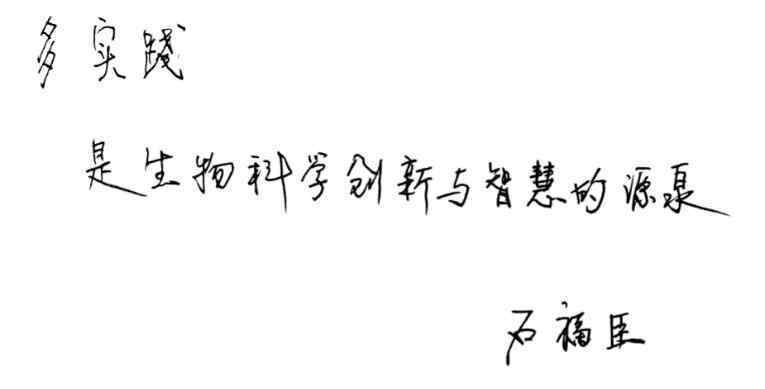 多实践
是生物科学创新与智慧的源泉
石福臣